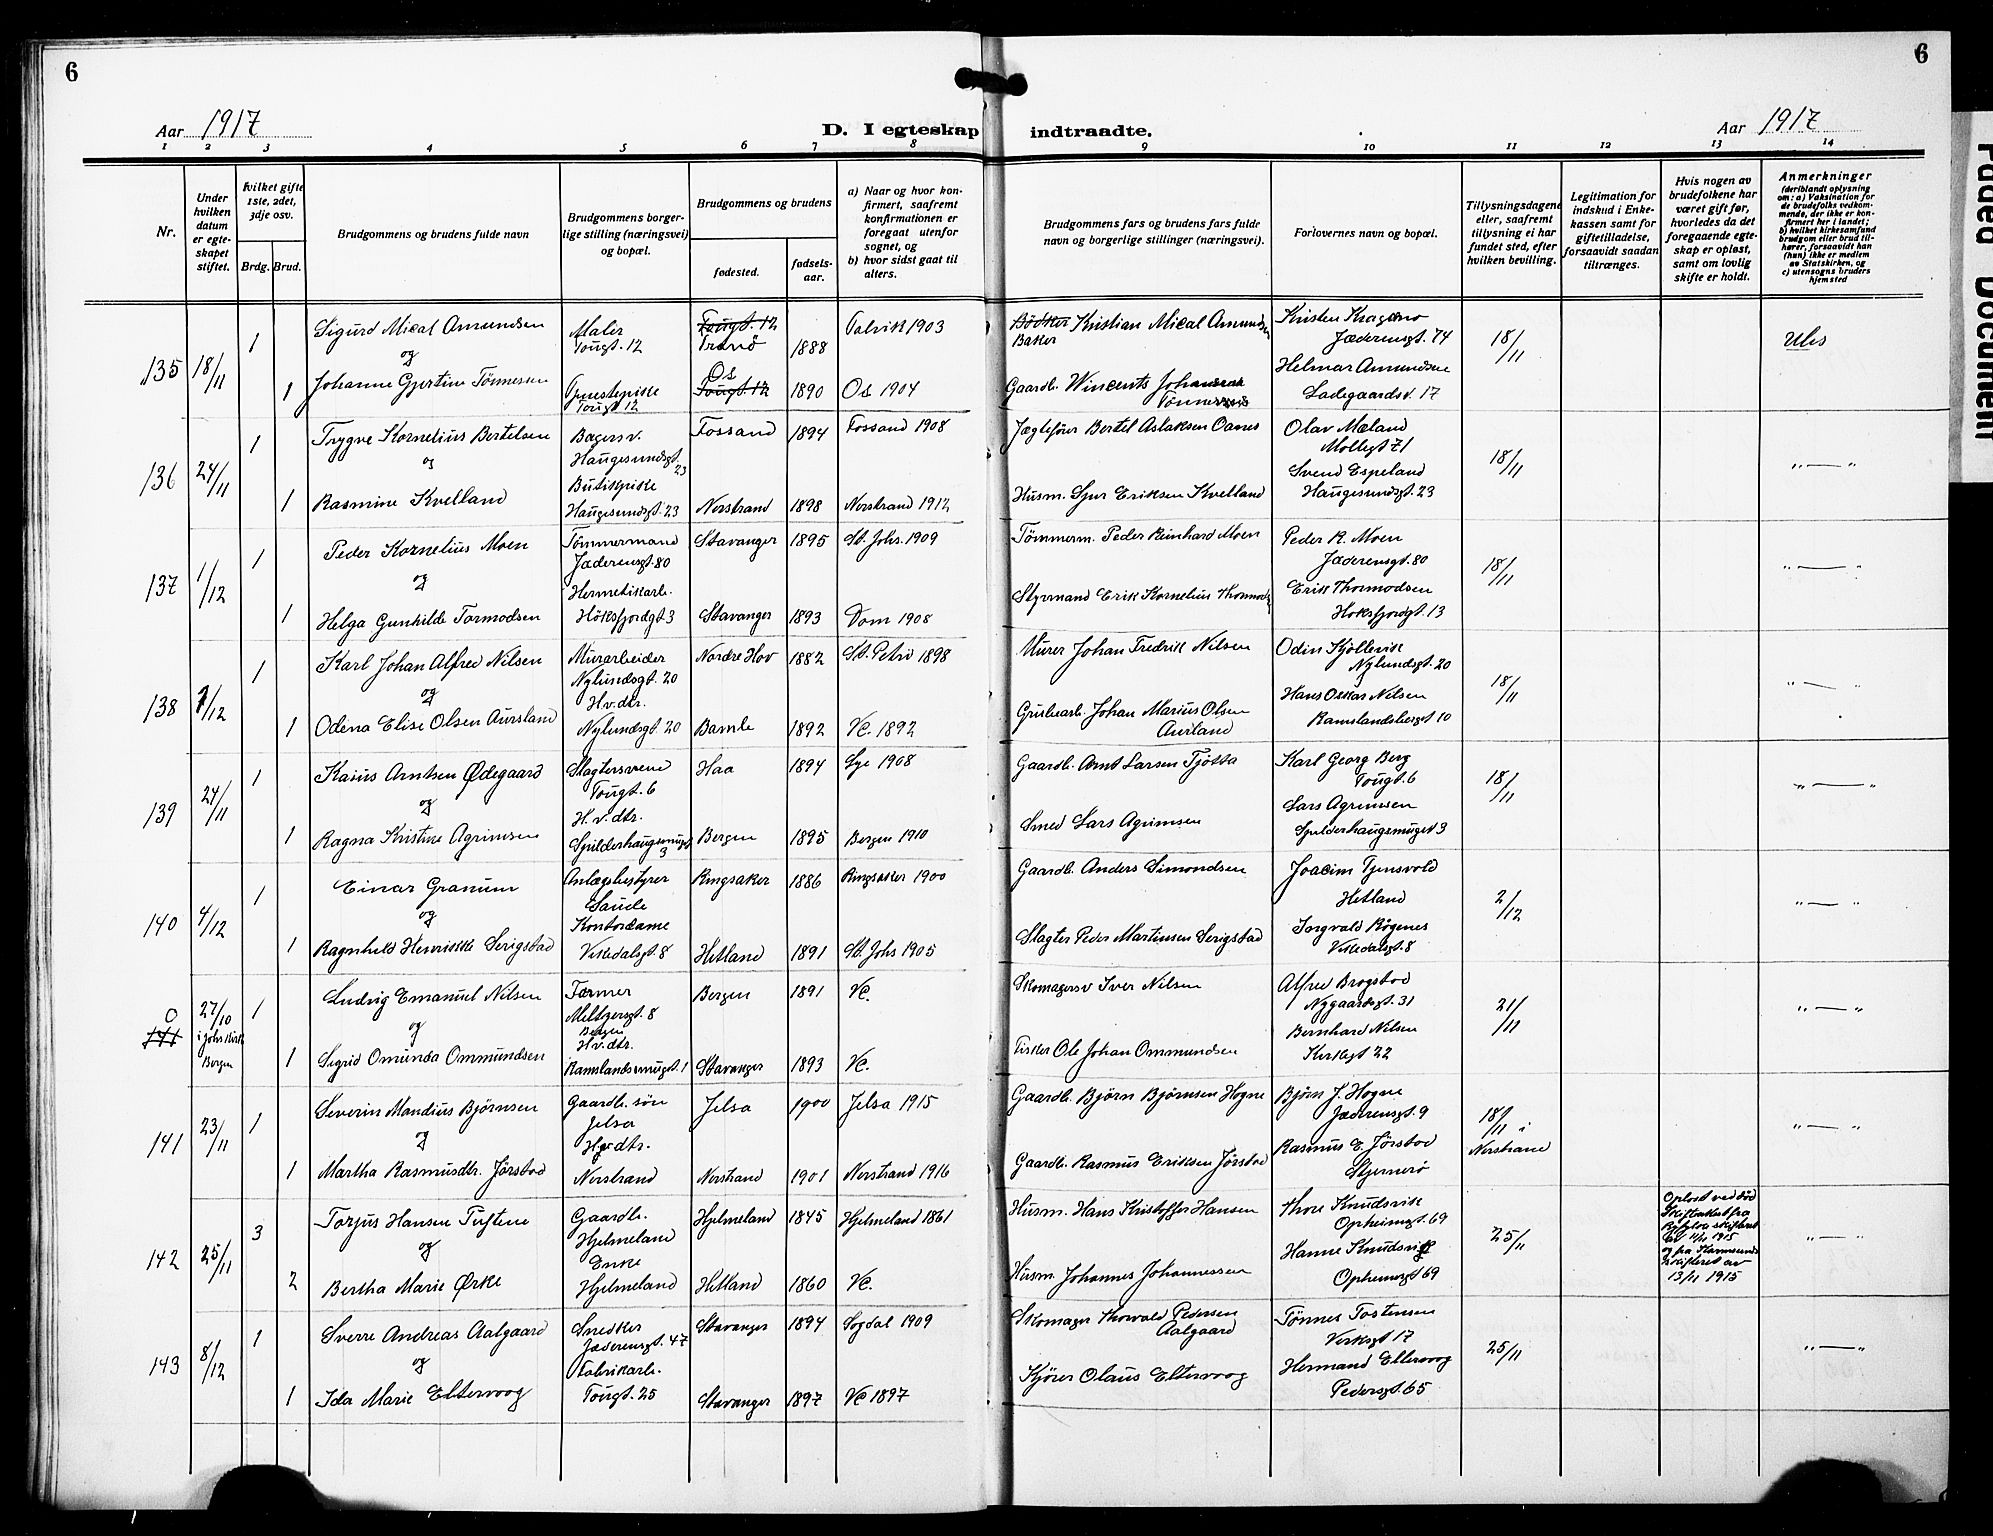 6
6
Aar 1917
D. I egteskap indtraadte.
Aar 1917
1 2 3 4 5 6 7 8 9 10 11 12 13 14
Nr.
Under hvilken datum er egteskapet stiftet.
hvilket gifte 1ste, 2det, 3dje osv.
Brdg. Brud.
Brudgommens og brudens fulde navn
Brudgommens borgerlige stilling (næringsvei) og bopæl.
Brudgommens og brudens
fødested.
fødselsaar.
a) Naar og hvor konfirmert, saafremt konfirmationen er foregaat utenfor sognet, og
b) hvor sidst gaat til alters.
Brudgommens fars og brudens fars fulde navn og borgerlige stillinger (næringsvei).
Forlovernes navn og bopæl.
Tillysningsdagene eller, saafremt tillysning ei har fundet sted, efter hvilken bevilling.
Legitimation for indskud i Enkekassen samt for giftetilladelse, forsaavidt saadan tiltrænges.
Hvis nogen av brudefolkene har været gift før, hvorledes da det foregaaende egteskap er opløst, samt om lovlig skifte er holdt.
Anmerkninger
(deriblandt oplysning om: a) Vaksination for de brudefolks vedkommende, der ikke er konfirmert her i landet; b) hvilket kirkesamfund brudgom eller brud tilhører, forsaavidt han (hun) ikke er medlem av Statskirken, og c) utensogns bruders hjemsted
135 18/11 1 Sigurd Mical Amundsen Maler Tougt. 12 Tougt. 12 Tranø 1888 1903 Bødker Baker Kristian Mical Amundsen Kristen Kragenø Jæderensgt. 74 18/11
og
1 Johanne Gjertine Tønnesen Tjenestepike Tougt 12 Os Tougt. 12 1890 Os 1904 Gaardb. Wincents Johansen Tønnessen Helmar Amundsen Ladegaardsv. 17
136 24/11 1 Trygve Kornelius Bertelsen Bagersv. Haugesundsgt. 23 Fossand 1894 Fossand 1908 Jægtefører Bertel Aslaksen Oanes Olav Mæland Møllegt 71 18/11 " — "
og
1 Rasmine Kvelland Butikpike Haugesundsgt. 23 Nerstrand 1898 Nerstrand 1912 Husm. Sjur Eriksen Kvelland Svend Espeland Haugesundsgt. 23
137 1/12 1 Peder Kornelius Moen Tømmermand Jæderensgt. 80 Stavanger 1895 St. Johs. 1909 Tømmerm. Peder Reinhard Moen Peder R. Moen Jæderensgt. 80 18/11 " — "
og
1 Helga Gunhilde Tormodsen Hermetikarb. Høksfjordgt 3 Stavanger 1893 Dom 1908 Styrmand Erik Kornelius Thormods Erik Thormodsen Høksfjordgt. 13
138 1/12 1 Karl Johan Alfred Nilsen Murarbeider Nylundsgt. 20 Nordre Hov 1882 St. Petri 1898 Murer Johan Fredrik Nilsen Odin Kjøllevik Nylundsgt. 20 18/11 " — "
og
1 Odena Elise Olsen Aursland H.v.dtr. Nylundsgt. 20 Bamle 1892 Vc. 1892 Grubearb. Johan Marius Olsen Aurland Hans Oskar Nilsen Ramslandsbergt 10
139 24/11 1 Kasius Arntsen Ødegaard Slagtersvend Tougt. 6 Haa 1894 Lye 1908 Gaardb. Arnt Larsen Tjøtta Karl Georg Berg Tougt. 6 18/11 " — "
og
1 Ragna Kristine Agrimsen H.v.dtr. Spilderhaugsmuget 3 Bergen 1895 Bergen 1910 Smed Lars Agrimsen Lars Agrimsen Spilderhaugsmuget 3
140 4/12 1 Einar Granum Anlægsbestyrer Saude Ringsaker 1886 Ringsaker 1900 Gaardb. Anders Simondsen Joacim Tjensvold Hetland 2/12 " — "
og
1 Ragnhild Henrikke Serigstad Kontordame Vikedalsgt. 8 Hetland 1891 St. Johs 1905 Slagter Peder Martinsen Serigstad Torgvald Røgenes Vikedalsgt. 8
0 141 27/10 i Johs Kirk Bergen 1 Ludvig Emanuel Nilsen Former Meltzersgt. 8 Bergen Bergen 1891 Vc. Skomagersv Iver Nilsen Alfred Brogstad Nygaardsgt. 31 21/11 " — "
og
1 Sigrid Omunda Ommundsen H.v.dtr. Ramslandsmugt. 1 Stavanger 1893 Vc. Fisker Ole Johan Ommundsen Bernhard Nilsen Kirkegt 22
141 23/11 1 Severin Mandius Bjørnsen Gaardb. søn Jelsa Jelsa 1900 Jelsa 1915 Gaardb. Bjørn Bjørnsen Hogne Bjørn J. Hogne Jæderensgt. 9 18/11 i Nerstrand " — "
og
1 Martha Rasmusdtr. Jørstad Hgrdtr. Nerstrand Nerstrand 1901 Nerstrand 1916 Gaardb. Rasmus Eriksen Jørstad Rasmus E. Jørstad Stjernerø
142 25/11 3 Torjus Hansen Tuftene Gaardb. Hjelmeland Hjelmeland 1845 Hjelmeland 1861 Husm. Hans Kristoffer Hansen Thore Knudsvik Opheimsgt. 69 25/11 Opløst ved død Skifteattest fra skifteret av 11/11 1915 og fra Karmsund skifteret av 13/11 1915 " — "
og
2 Bertha Marie Ørke Enke Hjelmeland Hetland 1860 Vc. Husm. Johannes Johannessen Hanne Knudsvig Opheimsgt 69
143 8/12 1 Sverre Andreas Aalgaard Snedker Jæderensgt. 47 Stavanger 1894 Sogdal 1909 Skomager Thorvald Pedersen Aalgaard Tønnes Tostensen Verksgt 17 25/11 " — "
og
1 Ida Marie Eltervoog Fabrikarb. Tougt. 25 Stavanger 1897 Vc 1897 Kjører Olaus Eltervoog Hermand Eltervoog Pedersgt. 65
Faded Document